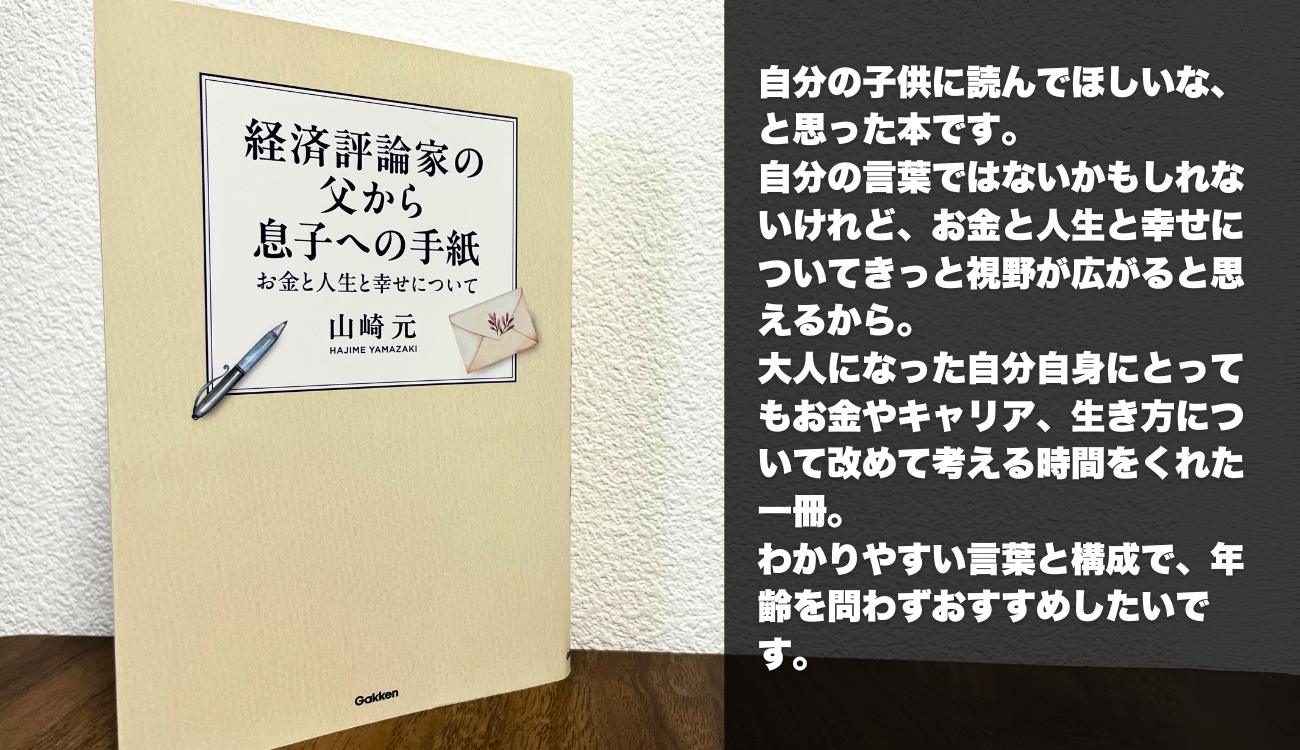 経済評論家の
父から
息子への手紙
お金と人生と幸せについて
山崎 元
HAJIME YAMAZAKI
Gakken
自分の子供に読んでほしいな、
と思った本です。
自分の言葉ではないかもしれな
いけれど、お金と人生と幸せに
ついてきっと視野が広がると思
えるから。
大人になった自分自身にとって
もお金やキャリア、生き方につ
いて改めて考える時間をくれた
一冊。
わかりやすい言葉と構成で、年
齢を問わずおすすめしたいで
す。